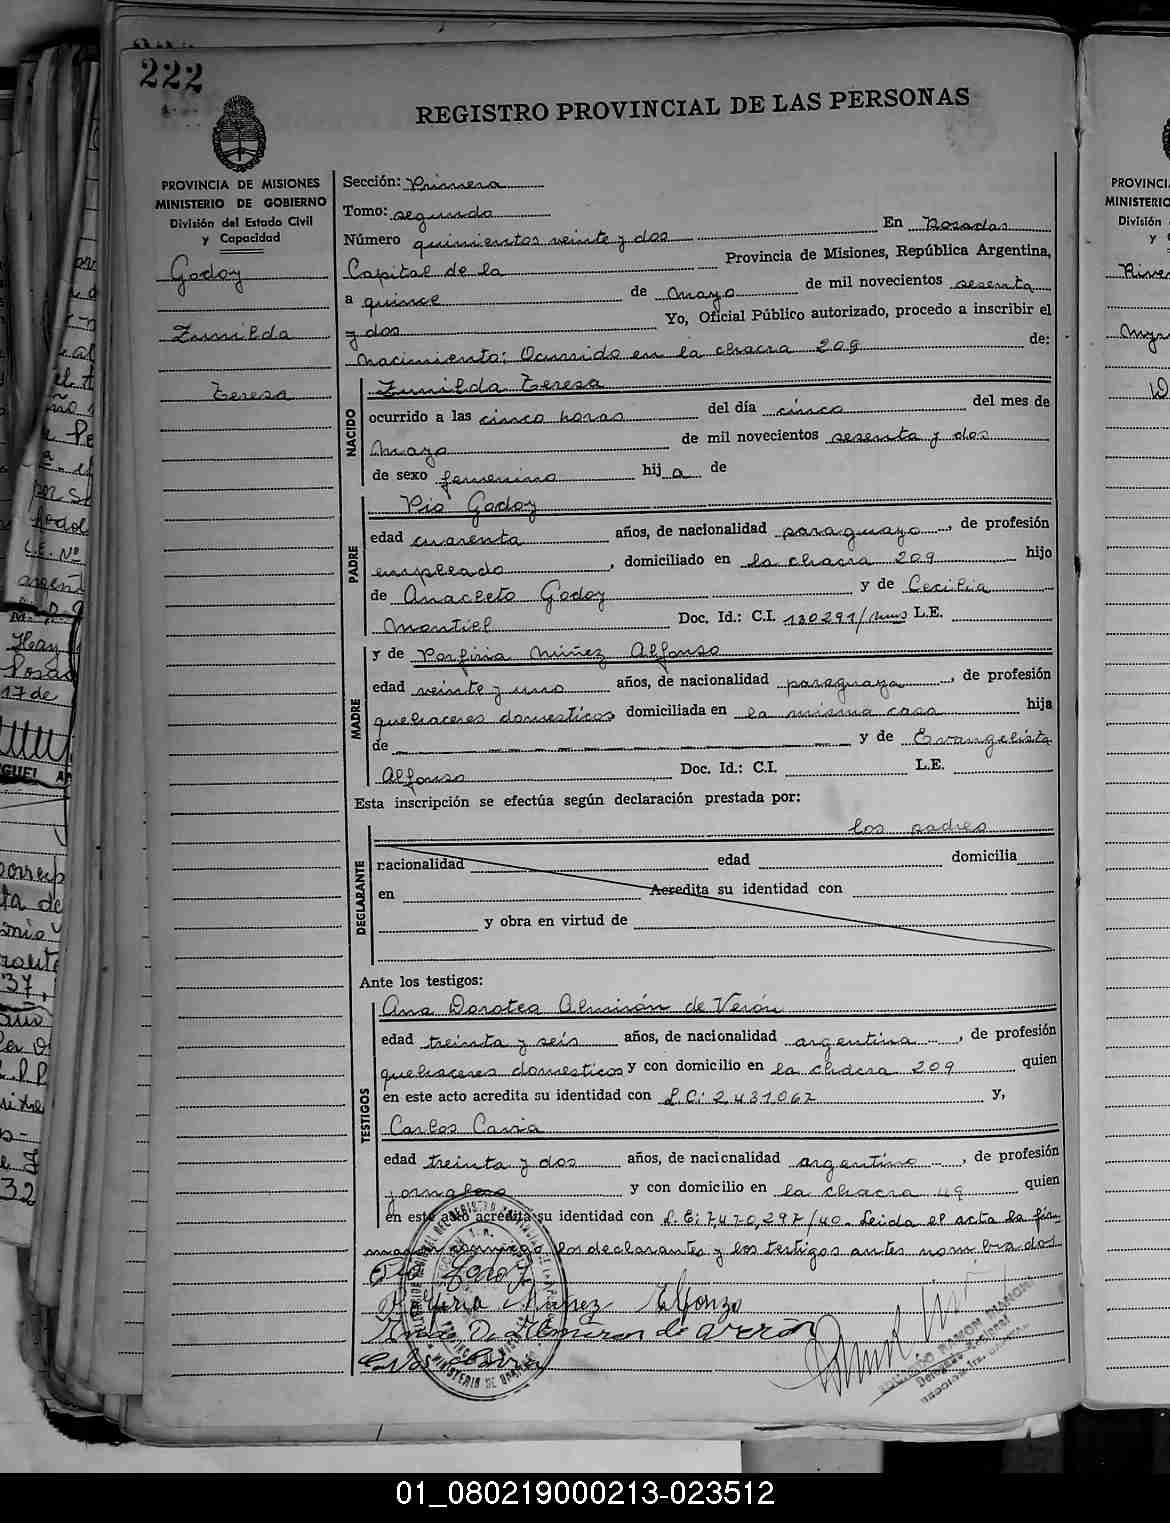 222
REGISTRO PROVINCIAL DE LAS PERSONAS
PROVINCIA DE MISIONES
MINISTERIO DE GOBIERNO
División del Estado Civil
y Capacidad
Godoy
Zunilda
Teresa
Sección: Primera
Tomo: segundo
Número quinientos veinte y dos En Posadas
Capital de la Provincia de Misiones, República Argentina,
a quince de mayo de mil novecientos sesenta
y dos Yo, Oficial Público autorizado, procedo a inscribir el
nacimiento: Ocurrido en la chacra 209 de:
NACIDO
Zunilda Teresa
ocurrido a las cinco horas del día cinco del mes de
mayo de mil novecientos sesenta y dos
de sexo femenino hij a de
PADRE
Pio Godoy
edad cuarenta años, de nacionalidad paraguayo, de profesión
empleado, domiciliado en la chacra 209 hijo
de Anacleto Godoy y de Cecilia
Montiel Doc. Id.: C.I. 130291/mnes L.E.
MADRE
y de Porfiria Núñez Alfonso
edad veinte y uno años, de nacionalidad paraguaya, de profesión
quehaceres domesticos domiciliada en la misma casa hija
de y de Evangelista
Alfonso Doc. Id.: C.I. L.E.
Esta inscripción se efectúa según declaración prestada por:
DECLARANTE
los padres
nacionalidad edad domicilia
en Acredita su identidad con
y obra en virtud de
Ante los testigos:
TESTIGOS
Ana Dorotea Almirón de Verón
edad treinta y seis años, de nacionalidad argentina, de profesión
quehaceres domesticos y con domicilio en la chacra 209 quien
en este acto acredita su identidad con L.C: 2,431,067 y,
Carlos Cariz
edad treinta y dos años, de nacionalidad argentino, de profesión
jornalero y con domicilio en la chacra 49 quien
en este acto acredita su identidad con L.E: 7,470,297/40. Leida el acta la fir-
man conmigo los declarantes y los testigos antes nombrados
Pio Godoy
Porfiria Nuñez Alfonzo
Ana D. Almiron de Verón
Carlos
RAMON
Delegado Regional
01_080219000213-023512